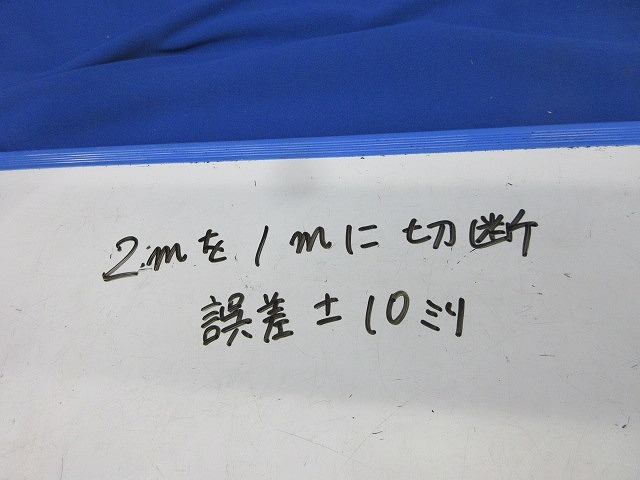 2mを1mに切断
誤差±10ミリ